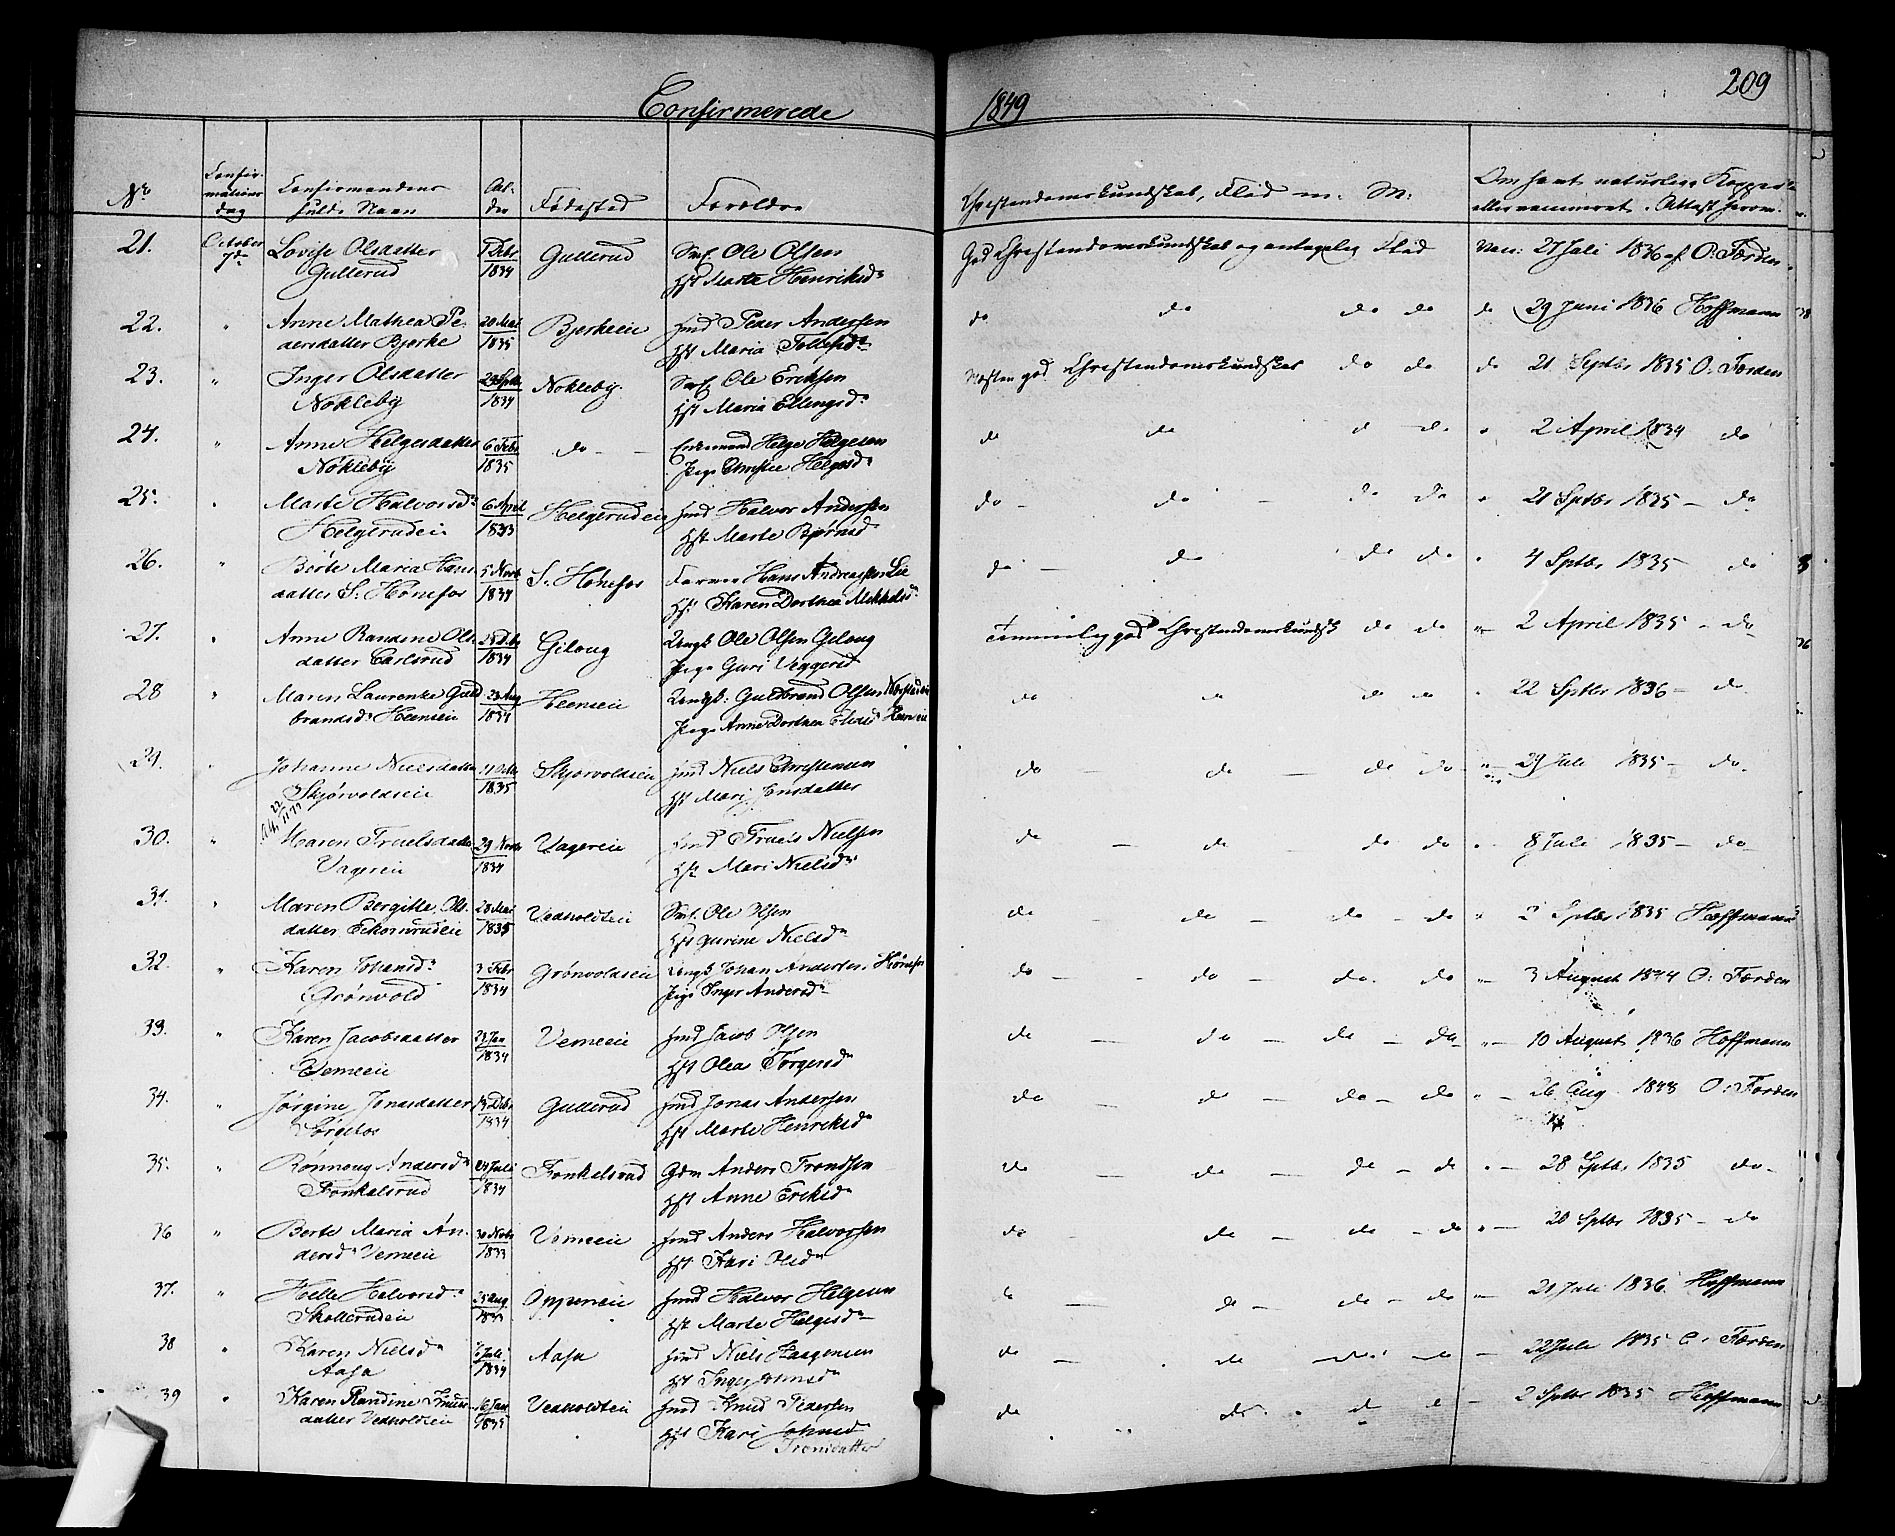 Confirmerede 1849
209
No Confirmations dag Confirmandens fulde Navn Alder Fødested Forældre Christendomskundskab, Flid m. M: Om havt naturlige Kopper eller vaccineret. Attest herom.
21. October 7de Lovise Olsdatter Gullerud 1 Debr 1834 Gullerud Smf. Ole Olsen Hst Marte Henriksdr God Christendomskundskab og antagelig Flid Vac: 27 Juli 1836 af O: Færden
22. " Anne Mathea Pedersdatter Bjerke 20 Mai 1835 Bjerkeeie Hmd Peder Andersen Hst Maria Tollefsdr do do do do do 29 Juni 1836 Hoffmann
23. " Inger Olsdatter Nokleby 29 Sptbr 1834 Nokleby Smf Ole Eriksen Hst Maria Ellingsdr Næsten god Christendomskundskab do do do 21 Sptbr 1835 O: Færden
24. " Anne Helgesdatter Nokleby 6 Febr 1835 do Enkemand Helge Helgesen Pige Christie Helgesdr do do d do " 2 April 1834 do
25. " Marte Halvorsdr Helgerudeie 6 April 1833 Helgerudeie Hmd Halvor Andersen Hst Marte Bjørnsd do do do do " 21 Sptbr 1835 do
26. " Birte Maria Hansdatter S. Hønefos 5 Novb 1834 S. Hønefos Farver Hans Andreassen Lie Hst Karen Dorthea Mikkelsdr do do do do " 4 Sptbr 1835 do
27. " Anne Randine Olsdatter Carlsrud 1834 Gihong Ungk Ole Olsen Gihong Pige Guri Veggerud Temmelig god Christendomskundsk do do " 2 April 1835 do
28 " Maren Laurenze Guldbrandsdr Heeneeie 23 Aug 1834 Heeneeie Ungk: Guldbrand Olsen Pige Anne Dorthea do do do do " 22 Sptbr 1836 do
29. " Johanne Nielsdatter Skjørvoldseie 1835 Skjorvoldseie Hmd Niels Christensen Hst Mari Jensdatter do do do do " 29 Juli 1835 do
30. " Maren Truelsdatter Vagereie 29 Novb 1834 Vagereie Hmd Truels Nielsen Hst Mari Nielsdr do do do do " 8 Juli 1835 do
31. " Maren Bergitte Olsdatter Eckornrudeie 28 Mai 1835 Vedholdteie Smf. Ole Olsen Hst Gurine Nielsdr do do do do " 2 Sptbr 1835 Hoffmann
32. " Karen Johansdr Grønvold 3 Febr 1834 Grønvoldseie Ungk Johan Andersen Hønefos Pige Inger Andersdr do do do do " 3 August 1834 O: Færden
33. " Karen Jacobsdatter Vemeeie 23 Jan 1834 Vemeeie Hmd Jacob Olsen Hst Olea Torgersdr do do do do " 10 August 1836 Hoffmann
34. " Jørgine Jonasdatter Sørgefos 13 Debr 1834 Gullerud Hmd Jonas Andersen Hst Marte Henriksdr do do do do " 26 Aug O: Færden
35. " Rønnoug Andersdr Fonkalsrud 24 Juli 1834 Fonkalsrud Gdm Anders Trondsen Hst Anne Eriksdr do do do do " 28 Sptbr 1835 do
36 " Berte Maria Andersdr Vemeeie 30 Novbr 1833 Vemeeie Hmd Anders Halvorsen Hst Kari Olsdr do do do do " 20 Sptbr 1835 do
37. " Helle Halvorsdr Skollerudeie 25 Aug Oppeneeie Hmd Halvor Helgesen Hst Marte Helgesdr do do do do " 21 Juli 1836 Hoffmann
38 " Karen Nielsdr Aasa Juli 1834 Aasa Hmd Niels Haagensen Hst Inger Johnsdr do do do do 22 Juli 1835 O: Færden
39 " Karen Randine Knudsdatter Vedholdteie 16 Jan 1835 Vedholdteie Hmd Knud Pedersen Hst Kari Johnsd Trondsdatter do do d d 2 Sptbr 1835 Hoffmann